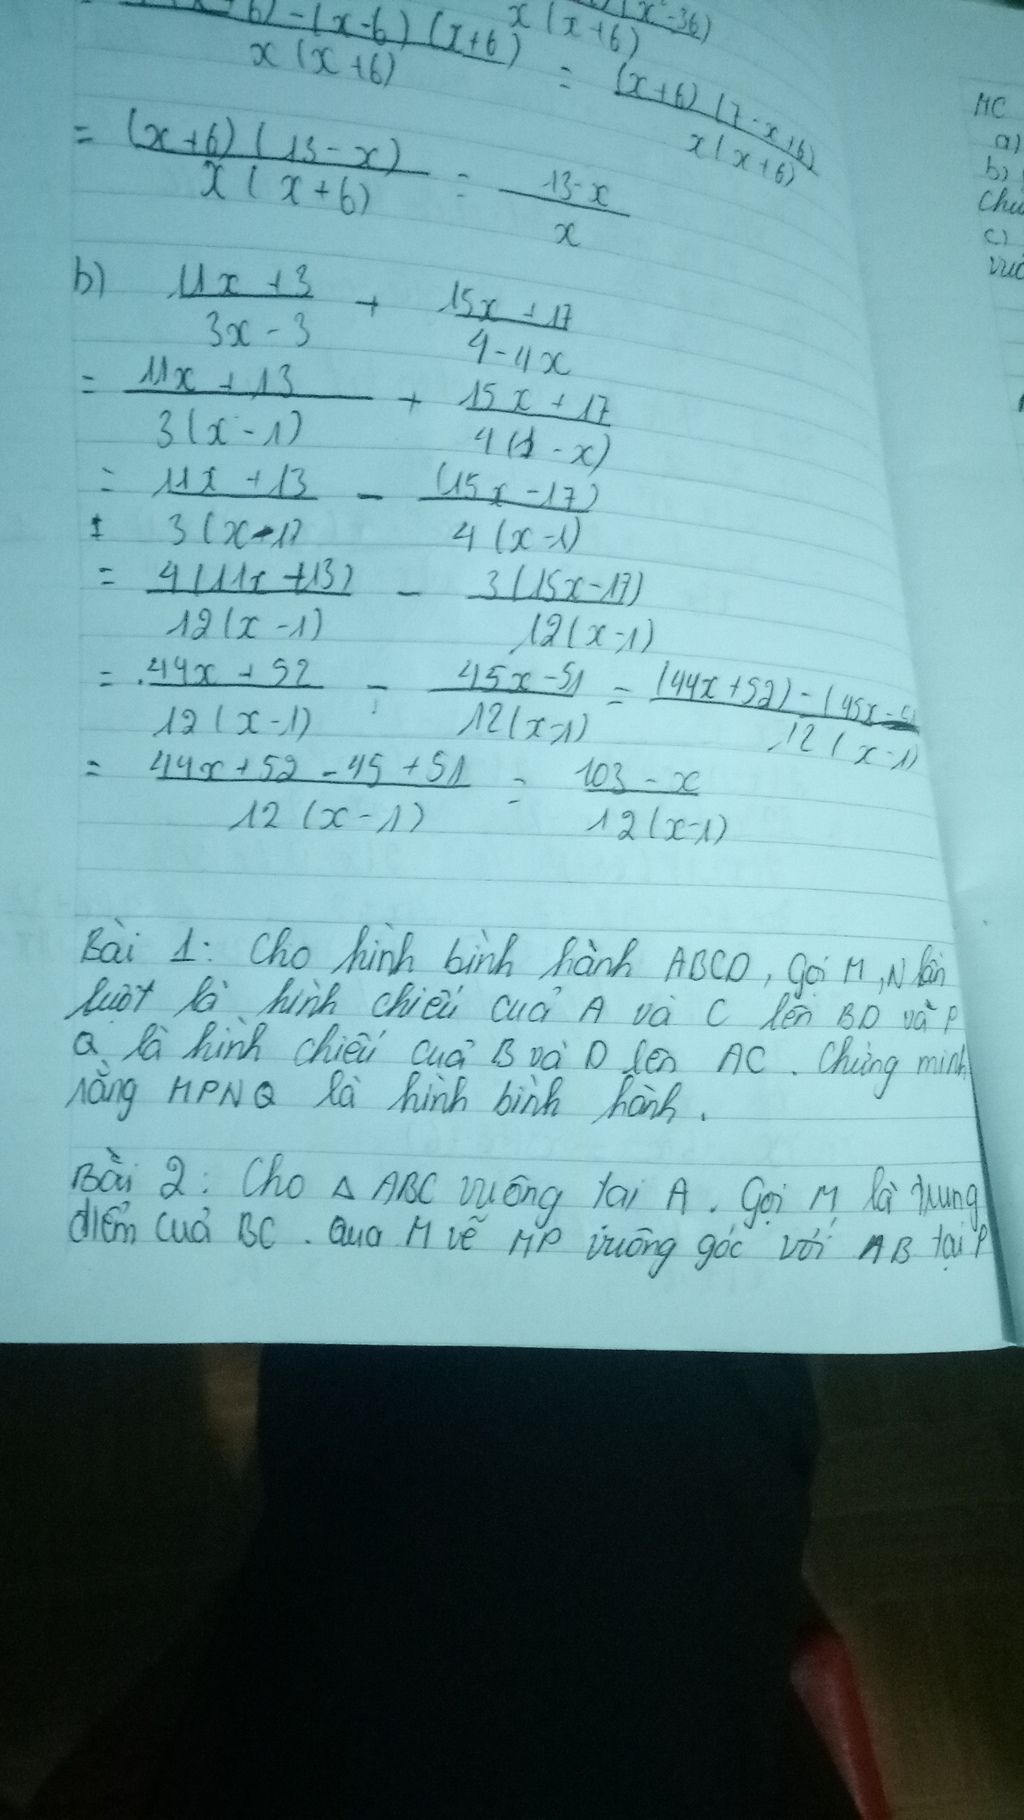 6) - (x-6) (x+6) / x (x+6)
x (x+6)
= (x+6) (7-x+6) / x (x+6)
= (x+6) (13-x) / x (x+6) = 13-x / x
b) 11x + 3 / 3x - 3 + 15x + 17 / 4-4x
= 11x + 13 / 3(x-1) + 15x + 17 / 4(1-x)
= 11x + 13 / 3(x-1) - (15x-17) / 4(x-1)
= 4(11x+13) / 12(x-1) - 3(15x-17) / 12(x-1)
= 44x + 52 / 12(x-1) - 45x-51 / 12(x-1) = (44x+52) - (45x-51 / 12(x-1)
= 44x+52-45+51 / 12(x-1) = 103-x / 12(x-1)
Bài 1: Cho hình bình hành ABCD, gọi M, N lần
lượt là hình chiếu cuả A và C lên BD và P
Q là hình chiếu cuả B và D lên AC. Chứng minh
rằng MPNQ là hình bình hành.
Bài 2: Cho Δ ABC vuông tại A. Gọi M là trung
điểm cuả BC. Qua M vẽ MP vuông góc với AB tại P
MC
a)
b)
c)